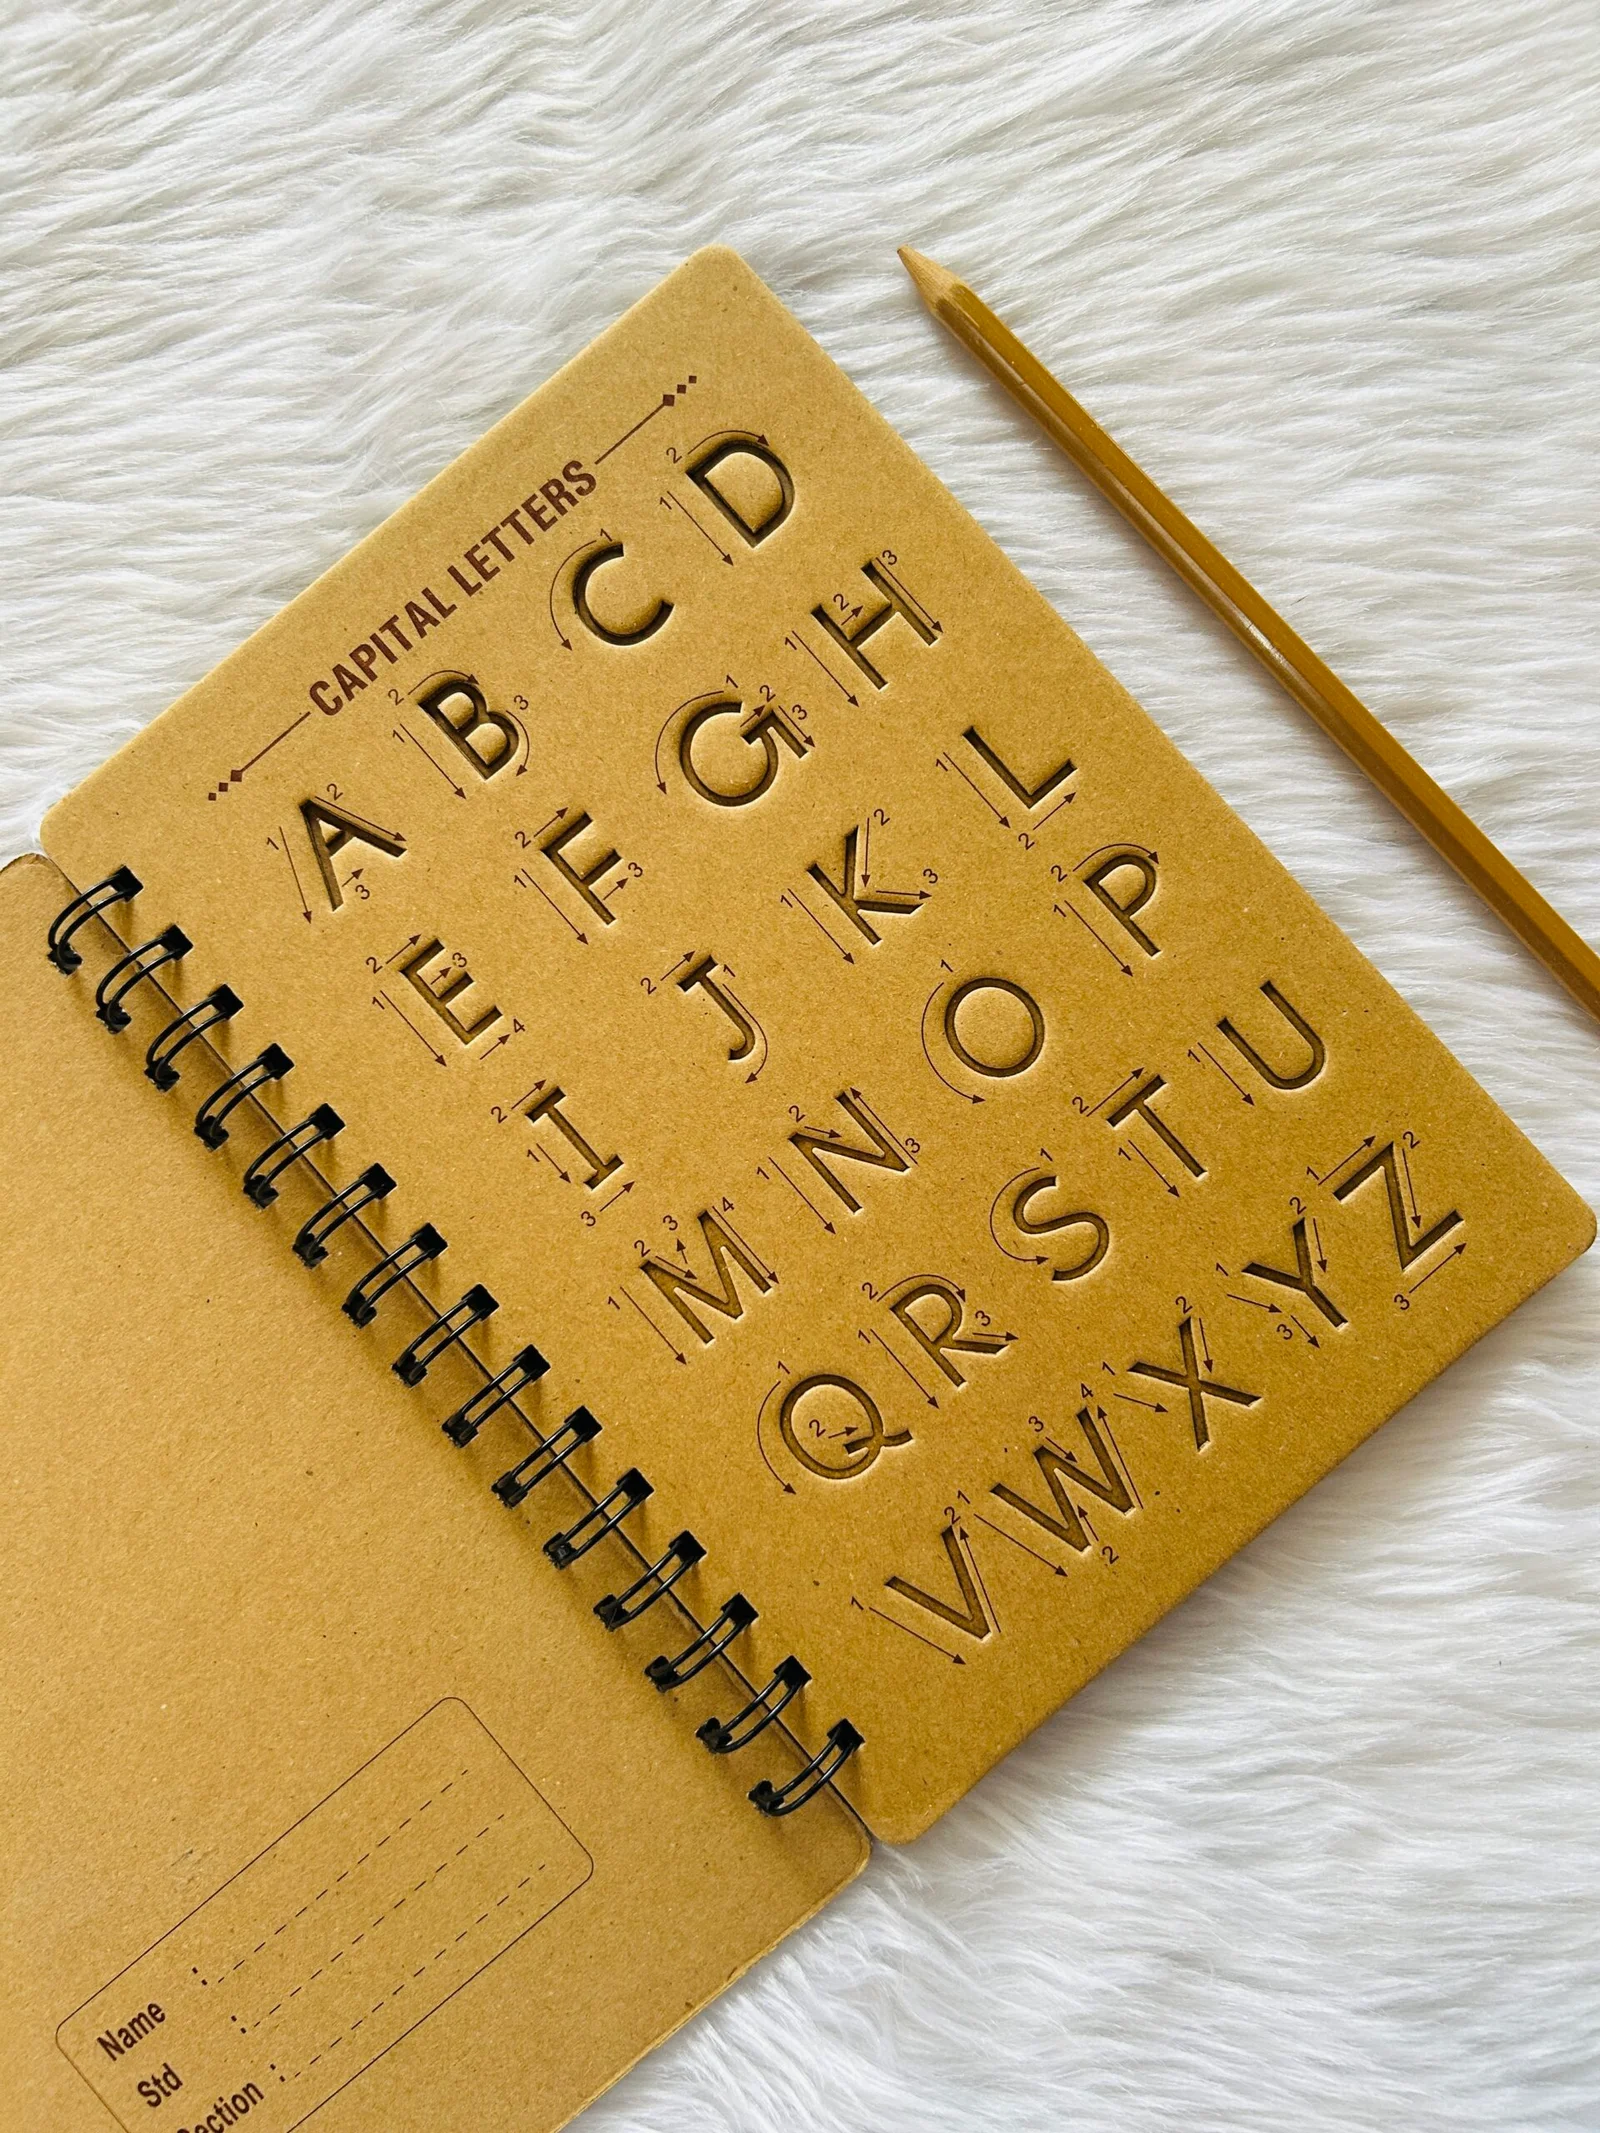 CAPITAL LETTERS
A B C D
E F G H
I J K L
M N O P
Q R S T U
V W X Y Z
Name :
Std :
Section :